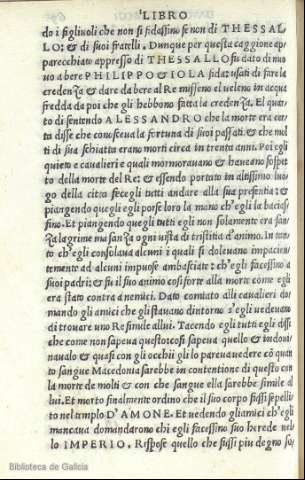 LIBRO
do i figliuoli che non si fidassino se non di THESSAL
LO: & di suoi fratelli. Dunque per questa caggione ap
parecchiato appresso di THESSALLO fu dato di nuo
vo a bere PHILIPPO & IOLA fidaz usati di fare la
credenza & dare da bere al Re misseno el veleno in acqua
fredda da poi che gli hebbono fatta la credenza. El quar
to di sentendo ALESSANDRO che la morte era cer
ta disse che conosceva la fortuna di suoi passati. & che mol
ti di sua schiatta erano morti circa in trenta anni. Poi egli
quieto e cavalieri e quali mormoravano & haveano sospet
to della morte del Re: & essendo portato in altissimo luo
go della citta fece gli tutti andare alla sua presentia: &
piangendo quegli egli porse loro la mano ch'egli la baciass
sino. Et piangendo quegli tutti egli non solamente era san
za lagrime ma sanza ogni vista di tristitia d'animo. In tan
to ch'egli consolava alcuni i quali si dolevano impacien
temente ad alcuni impuose ambasciate: ch'egli facessino a
suoi padri: & fu il suo animo cosi forte alla morte come egli
era stato contra a nemici. Dato comiato alli cavalieri do
mando gli amici che gli stavano dintorno s'egli vedevano
di trovare uno Re simile allui. Tacendo egli tutti egli disse
che come non sapeva questo cosi sapeva quello & indovi
navalo & quasi con gli occhii gli lo pareva vedere co quan
to sangue Macedonia sarebbe in contentione di questo con
la morte de molti & con che sangue ella sarebbe simile al
lui. Et morto finalmente ordino che il suo corpo fussi sepelli
to nel templo D'AMONE. Et vedendo gli amici ch'egli
mancava domandarono chi egli facessino suo herede nel
lo IMPERIO. Rispose quello che fussi piu degno suo
Biblioteca de Galicia